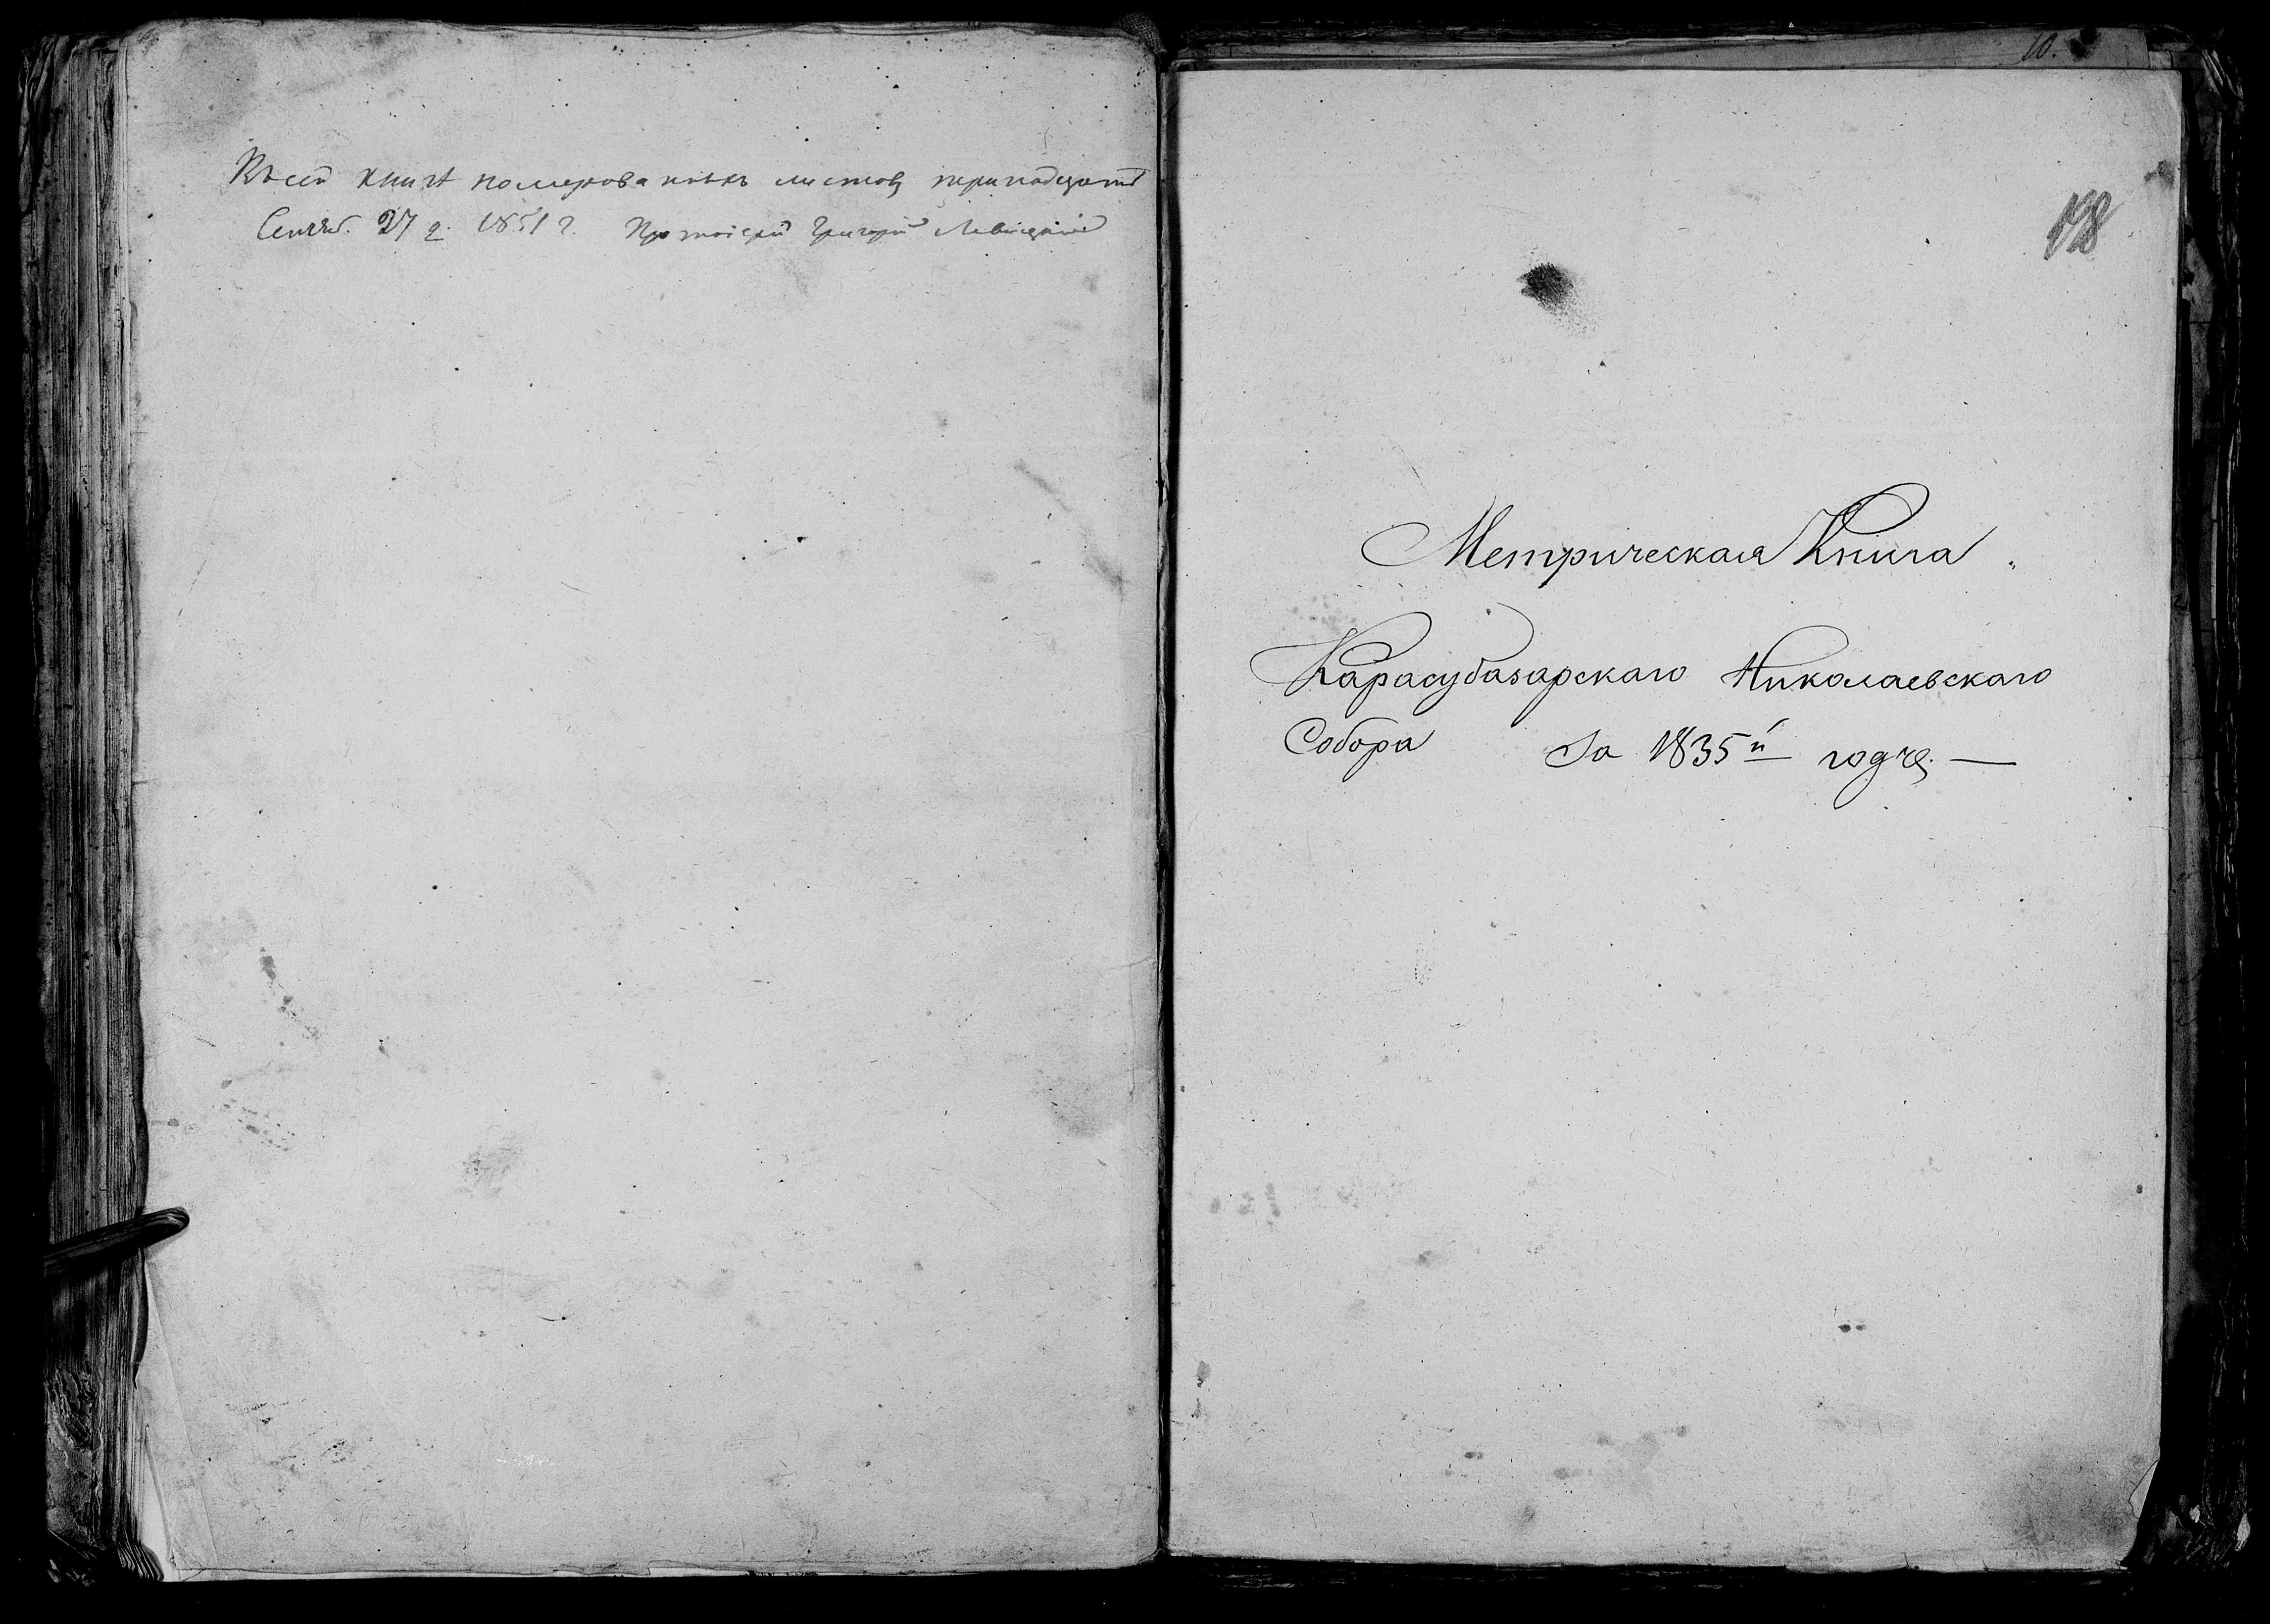 Въ сей книгѣ номерованныхъ листовъ тринадцать
Сентяб. 27 д. 1851 г. Протоіерей Григорій Левицкій
10.
198
Метрическая Книга
Карасубазарскаго Николаевскаго
Собора За 1835й годъ. —